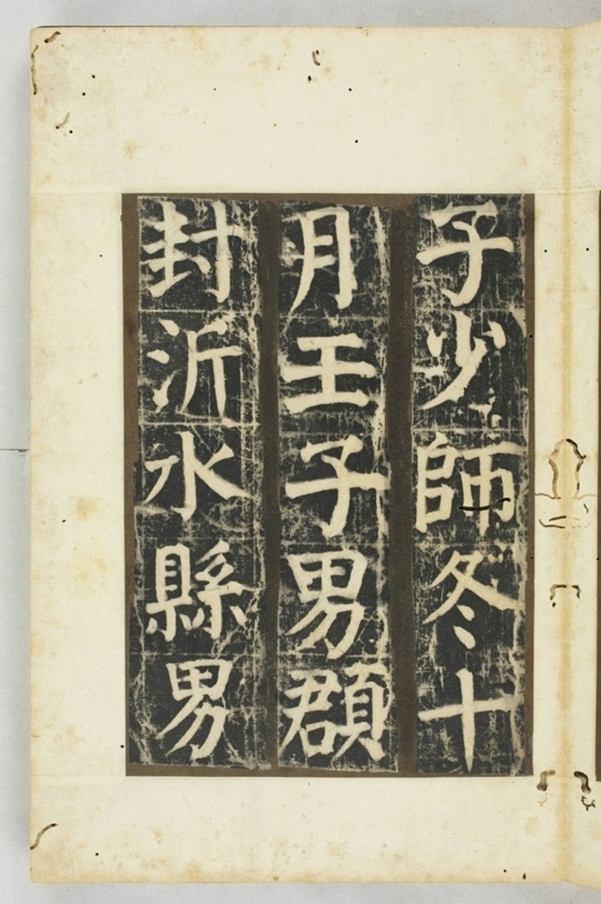 子少師冬十
月壬子男頵
封沂水縣男